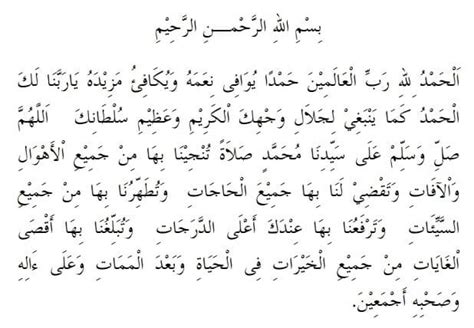 بِسْمِ اللهِ الرَّحْمـــنِ الرَّحِيْمِ
اَلْحَمْدُ لِلهِ رَبِّ الْعَالَمِيْنَ حَمْدًا يُوَافِى نِعَمَهُ وَيُكَافِئُ مَزِيْدَهُ يَارَبَّنَا لَكَ
الْحَمْدُ كَمَا يَنْبَغِيْ لِجَلَالِ وَجْهِكَ الْكَرِيْمِ وَعَظِيْمِ سُلْطَانِكَ اَللّٰهُمَّ
صَلِّ وَسَلِّمْ عَلَى سَيِّدِنَا مُحَمَّدٍ صَلاَةً تُنْجِيْنَا بِهَا مِنْ جَمِيْعِ الْأَهْوَالِ
وَاْلآفَاتِ وَتَقْضِيْ لَنَا بِهَا جَمِيْعَ الْحَاجَاتِ وَتُطَهِّرُنَا بِهَا مِنْ جَمِيْعِ
السَّيِّئَاتِ وَتَرْفَعُنَا بِهَا عِنْدَكَ أَعْلَى الدَّرَجَاتِ وَتُبَلِّغُنَا بِهَا أَقْصَى
الْغَايَاتِ مِنْ جَمِيْعِ الْخَيْرَاتِ فِى الْحَيَاةِ وَبَعْدَ الْمَمَاتِ وَعَلَى ءَالِهِ
وَصَحْبِهِ أَجْمَعِيْنَ.